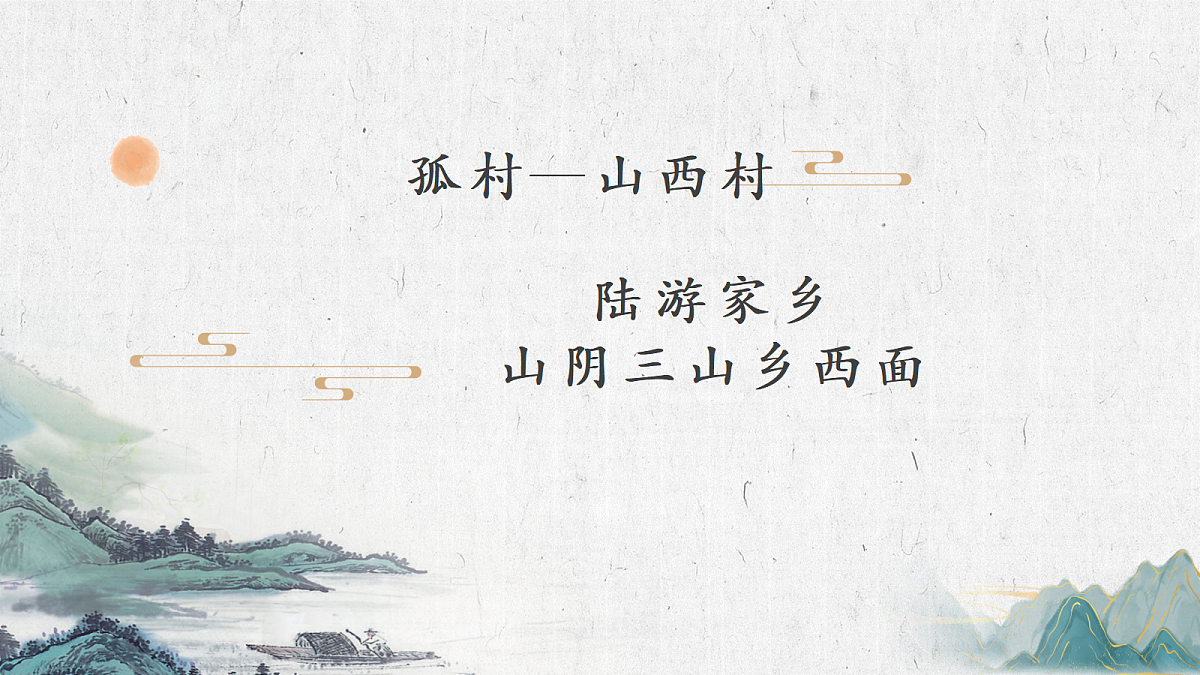 孤村—山西村
陆游家乡
山阴三山乡西面